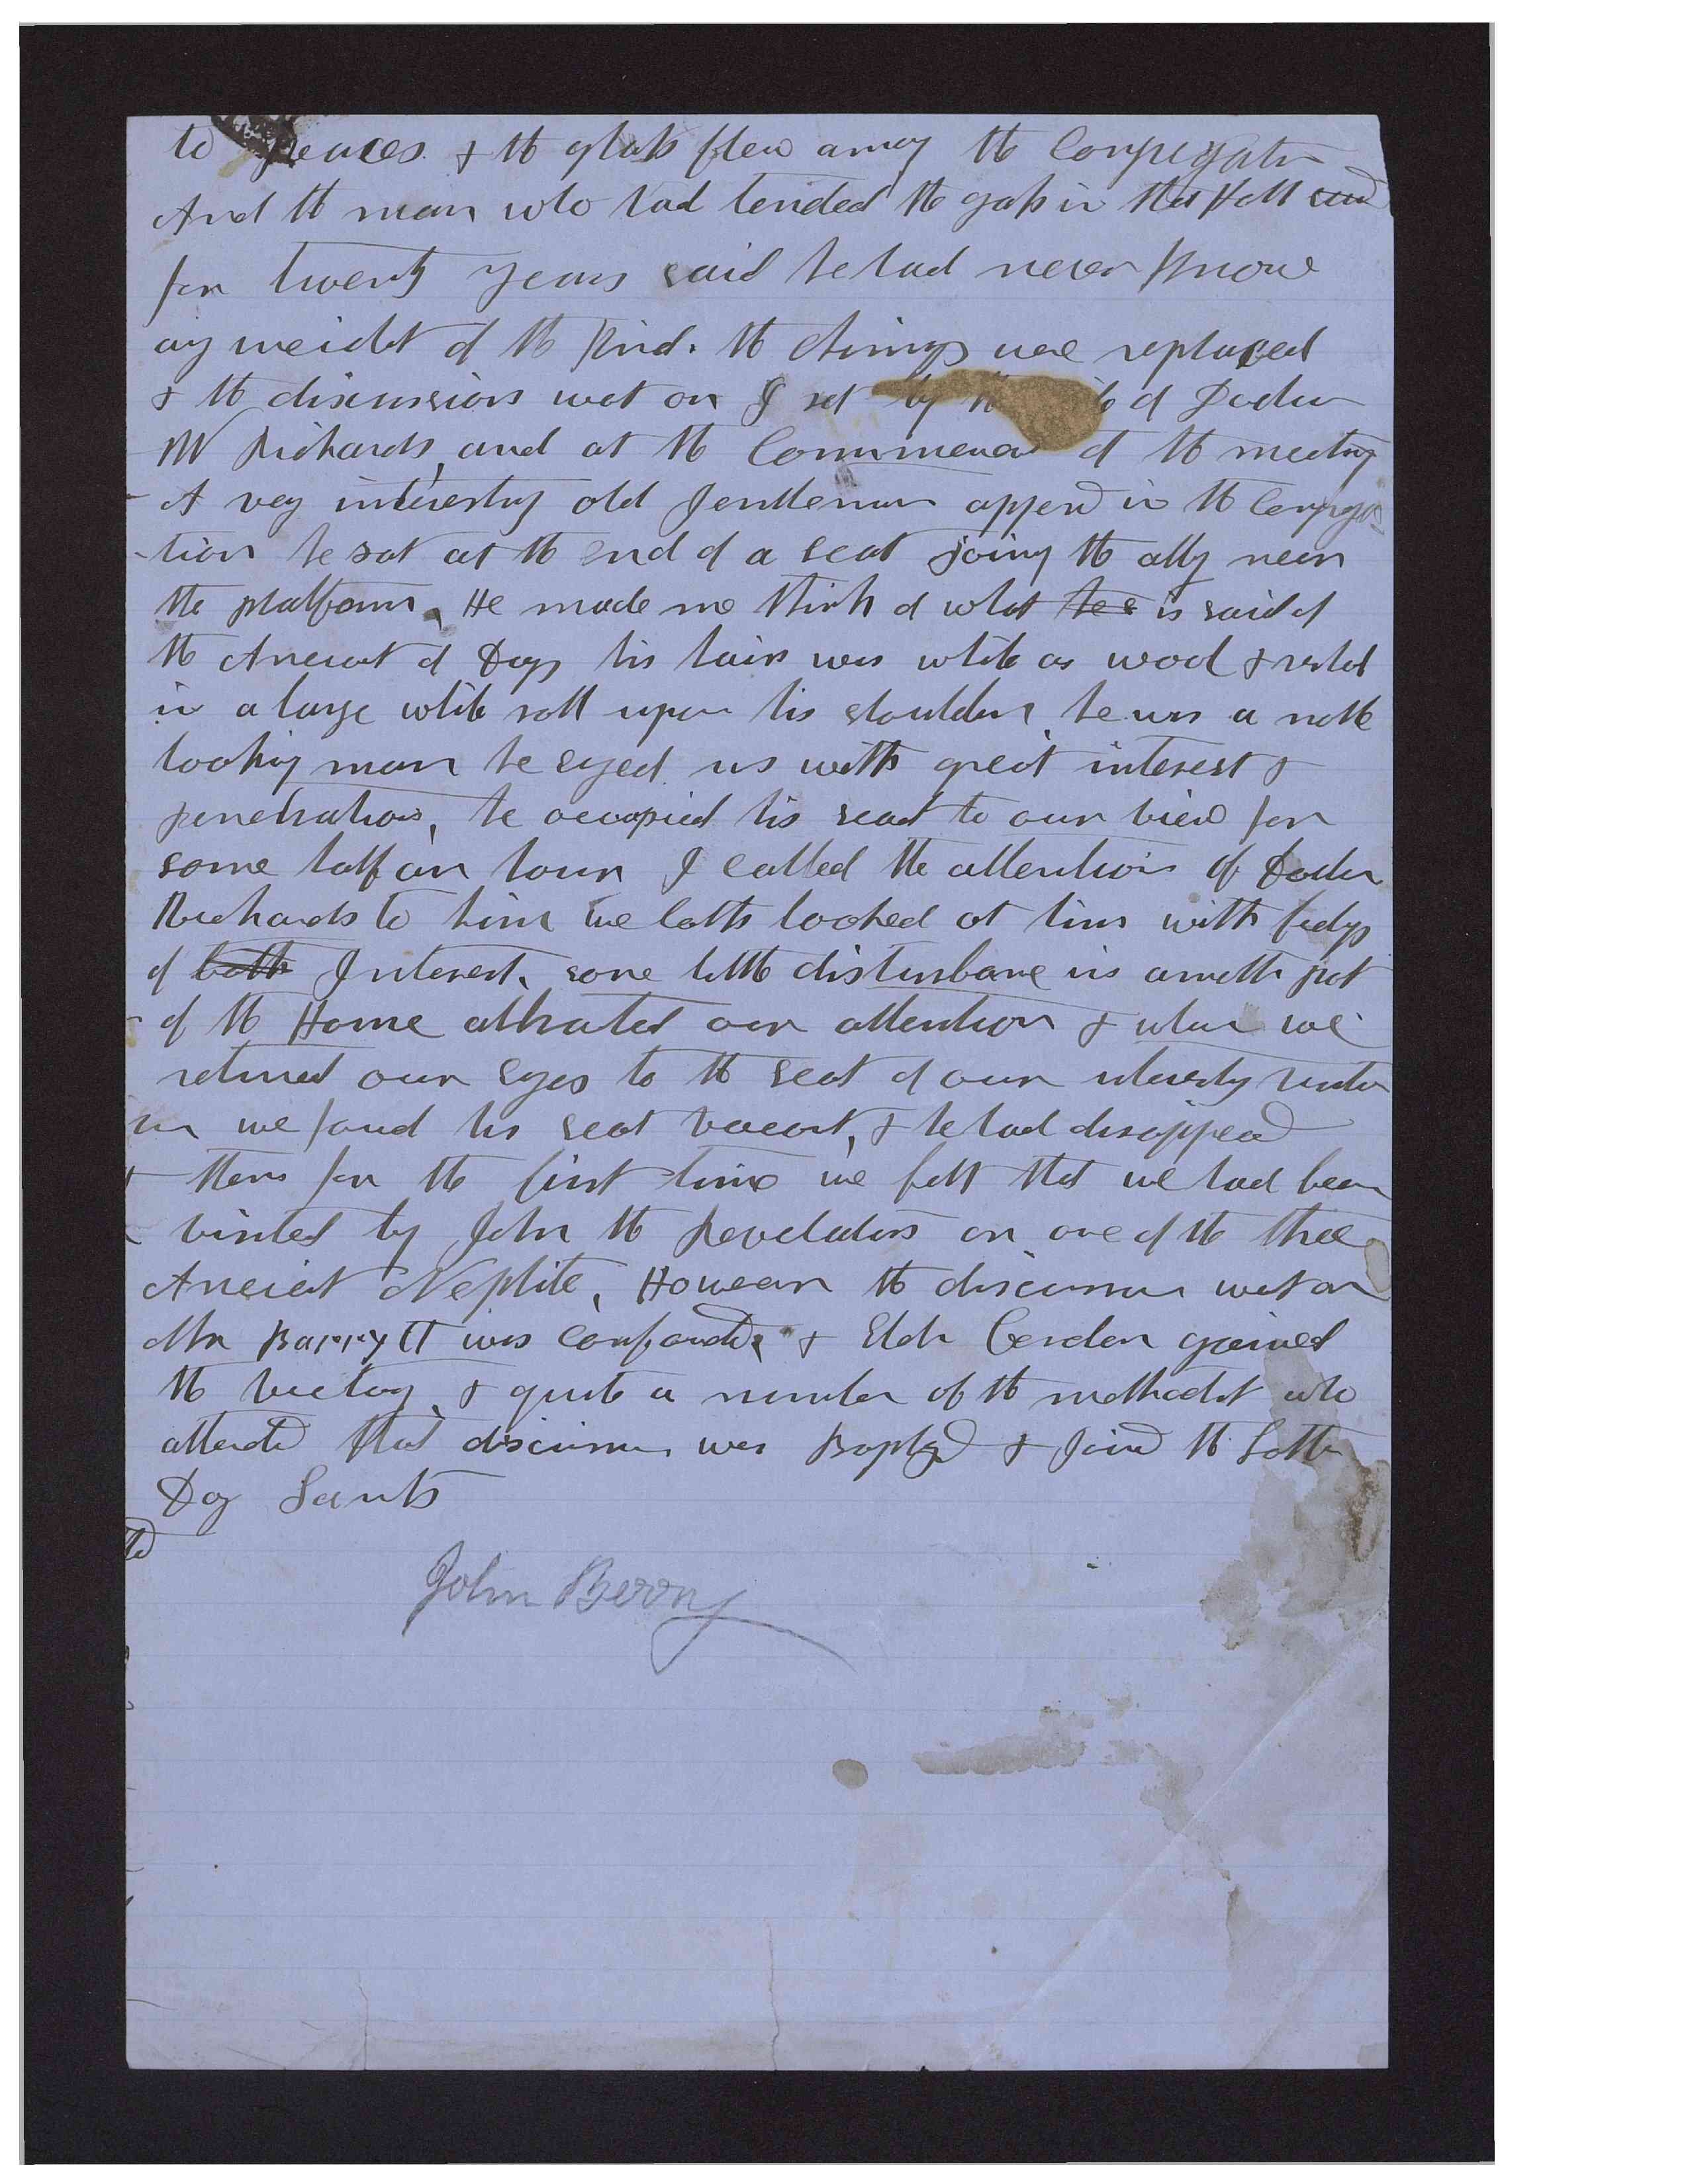 to peaces & the glass flew among the Congregation
And the man who had tended the gass in that Hall said
for twenty years said he had never Know
any incidet of the Kind. the chimnys were replaced
& the discussion wet on I set by the side of Docter
W Richards, and at the Commencmet of the meeting
A very interesting old Jentleman appeared in the Congrega
-tion he sat at the end of a seat joing the ally near
the platform, He made me think of what he s is said of
the Ancient of Days his hair was white as wool & rested
in a large white roll upon his shoulders he was a noble
looking man he eyed us with great interest &
penetration, he occupied his seat to our view for
some half an hour I called the attention of Docter
Richards to him we both looked at him with feelings
of both Interest, some little disturbane in another part
of the House attrated our attention & when we
returned our eyes to the seat of our interesting visitor
we found his seat vacant, & he had disappeared
then for the first time we felt that we had been
visited by John the Revelator or one of the three
Ancient Nephite, However the discussion wet on
Mr Barrytt was confounded & Elder Cordon gained
the victory & quite a number of the methodist who
attended that discussion was Baptized & Joined the Latter
Day Saints
John Berry